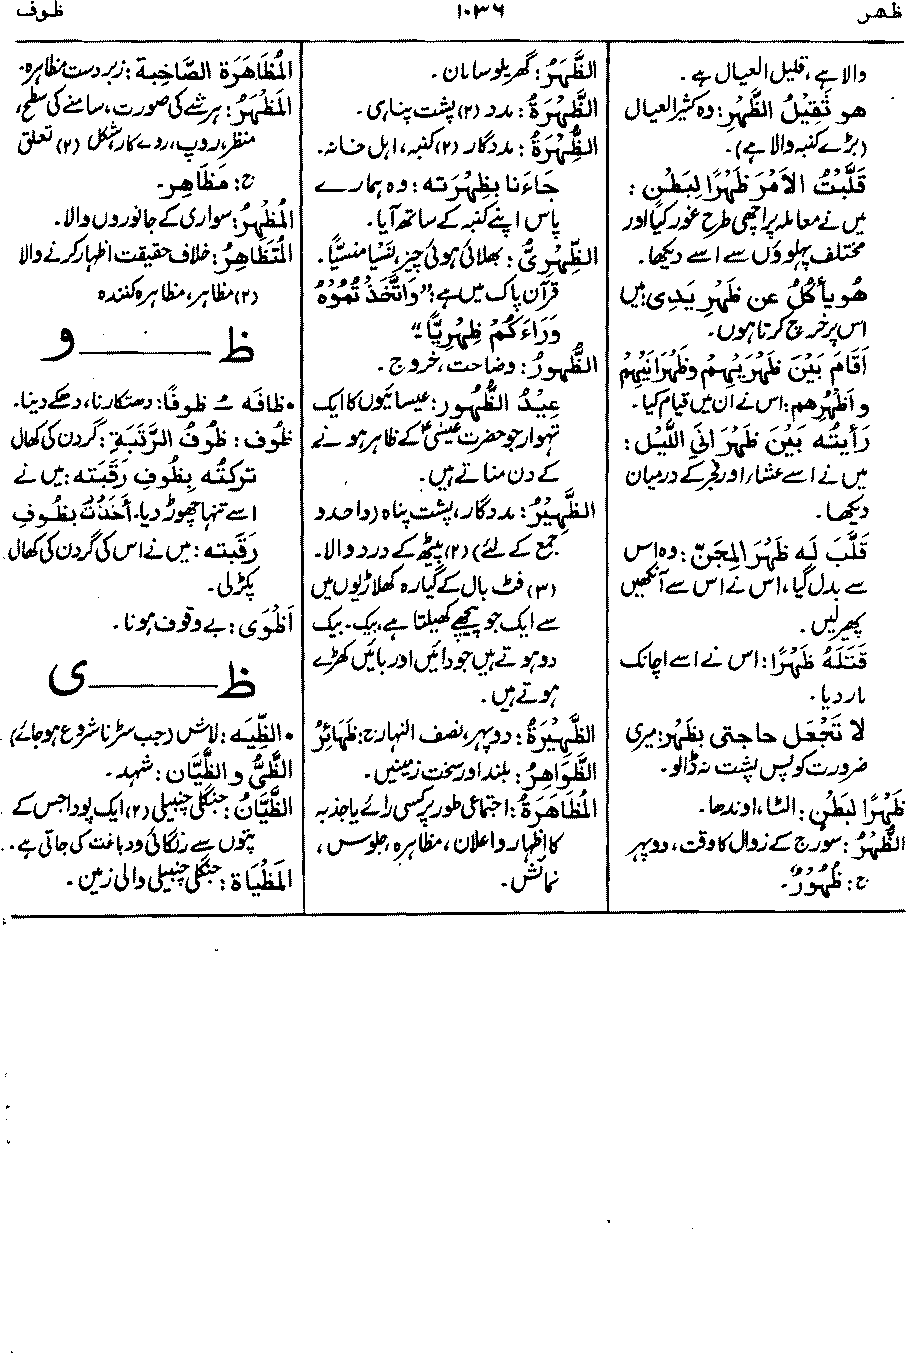 ظهر
۱۰۳۶
ظوف
والا ہے، قلیل العیال ہے۔
هو ثَقِيلُ الظَّهْرِ: وہ کثیر العیال
(بڑے کنبہ والا ہے)۔
قَلَّبْتُ الأَمْرَ ظَهْرًا لِبَطْنٍ:
میں نے معاملہ پر اچھی طرح غور کیا اور
مختلف پہلوؤں سے اسے دیکھا۔
هُوَ يأكُلُ عن ظَهْرِ يَدِي: میں
اس پر خرچ کرتا ہوں۔
أَقَامَ بَيْنَ ظَهْرَيْهِمْ وظَهْرَانَيْهِمْ
وأَظْهُرِهم: اس نے ان میں قیام کیا۔
رَأَيتُه بَيْنَ ظَهْرَانَيِ اللَّيْلِ:
میں نے اسے عشاء اور فجر کے درمیان
دیکھا۔
قَلَّبَ لَه ظَهْرَ المِجَنِّ: وہ اس
سے بدل گیا، اس نے اس سے آنکھیں
پھیر لیں۔
قَتَلَهُ ظَهْرًا: اس نے اسے اچانک
مار دیا۔
لا تَجْعَل حاجتي بِظَهْرٍ: میری
ضرورت کو پس پشت نہ ڈالو۔
ظَهْرًا لِبَطْنٍ: الٹا، اوندھا۔
الظُّهْرُ: سورج کے زوال کا وقت، دوپہر
ج: ظُهُورٌ۔
الظَّهَرُ: گھریلو سامان۔
الظَّهْرَةُ: مدد (۲) پشت پناہی۔
الظِّهْرَةُ: مددگار (۲) کنبہ، اہل خانہ۔
جَاءَنا بِظِهْرَتِه: وہ ہمارے
پاس اپنے کنبہ کے ساتھ آیا۔
الظِّهْرِيُّ: بھلائی ہوئی چیز، نَسْيًا مَنْسِيًّا۔
قرآن پاک میں ہے: "وَاتَّخَذْتُمُوْهُ
وَرَاءَكُمْ ظِهْرِيًّا"
الظُّهورُ: وضاحت، خروج۔
عِيْدُ الظُّهُور: عیسائیوں کا ایک
تہوار جو حضرت عیسیٰؑ کے ظاہر ہونے
کے دن مناتے ہیں۔
الظَّهِيْرُ: مددگار، پشت پناہ (واحد و
جمع کے لئے) (۲) پیٹھ کے درد والا۔
(۳) فٹ بال کے گیارہ کھلاڑیوں میں
سے ایک جو پیچھے کھیلتا ہے، بیک۔ بیک
دو ہوتے ہیں جو دائیں اور بائیں کھڑے
ہوتے ہیں۔
الظَّهِيْرَةُ: دوپہر، نصف النهار ج: ظَهَائِرُ
الظَّوَاهِرُ: بلند اور سخت زمینیں۔
المُظَاهَرَةُ: اجتماعی طور پر کسی رائے یا جذبہ
کا اظہار و اعلان، مظاہرہ، جلوس،
نمائش۔
المُظَاهَرَة الصَّاخِبة: زبردست مظاہرہ۔
المَظْهَرُ: ہر شے کی صورت، سامنے کی سطح،
منظر، روپ، روئے کار، شکل (۲) تعلق
ج: مَظَاهِر۔
المُظْهِرُ: سواری کے جانوروں والا۔
المُتَظَاهِرُ: خلاف حقیقت اظہار کرنے والا
(۲) مظاہر، مظاہرہ کنندہ
ظ ـــــــ و
• ظافَه ـُ ظوفًا: دھتکارنا، دھکے دینا۔
ظُوف: ظُوفُ الرَّقَبَةِ: گردن کی کھال
تركتُه بِظُوفِ رَقَبَتِه: میں نے
اسے تنہا چھوڑ دیا۔ أَخَذْتُ بِظُوفِ
رَقَبَتِه: میں نے اس کی گردن کی کھال
پکڑ لی۔
أَظْوَى: بے وقوف ہونا۔
ظ ـــــــ ى
• الظِّيَه: لاش (جب سڑنا شروع ہو جائے)
الظَّيُّ و الظَّيَّان: شہد۔
الظَّيَّانُ: جنگلی چنبیلی (۲) ایک پودا جس کے
پتوں سے رنگائی و دباغت کی جاتی ہے۔
المَظْيَاة: جنگلی چنبیلی والی زمین۔